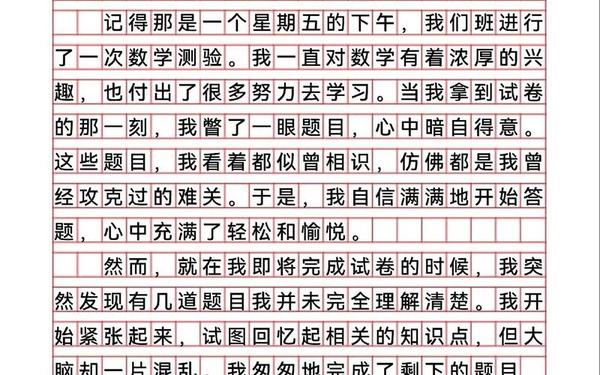 记得那是一个星期五的下午，我们班进行
了一次数学测验。我一直对数学有着浓厚的兴
趣，也付出了很多努力去学习。当我拿到试卷
的那一刻，我瞥了一眼题目，心中暗自得意。
这些题目，我看着都似曾相识，仿佛都是我曾
经攻克过的难关。于是，我自信满满地开始答
题，心中充满了轻松和愉悦。
然而，就在我即将完成试卷的时候，我突
然发现有几道题目我并未完全理解清楚。我开
始紧张起来，试图回忆起相关的知识点，但大
脑却一片混乱。我匆匆地完成了剩下的题目